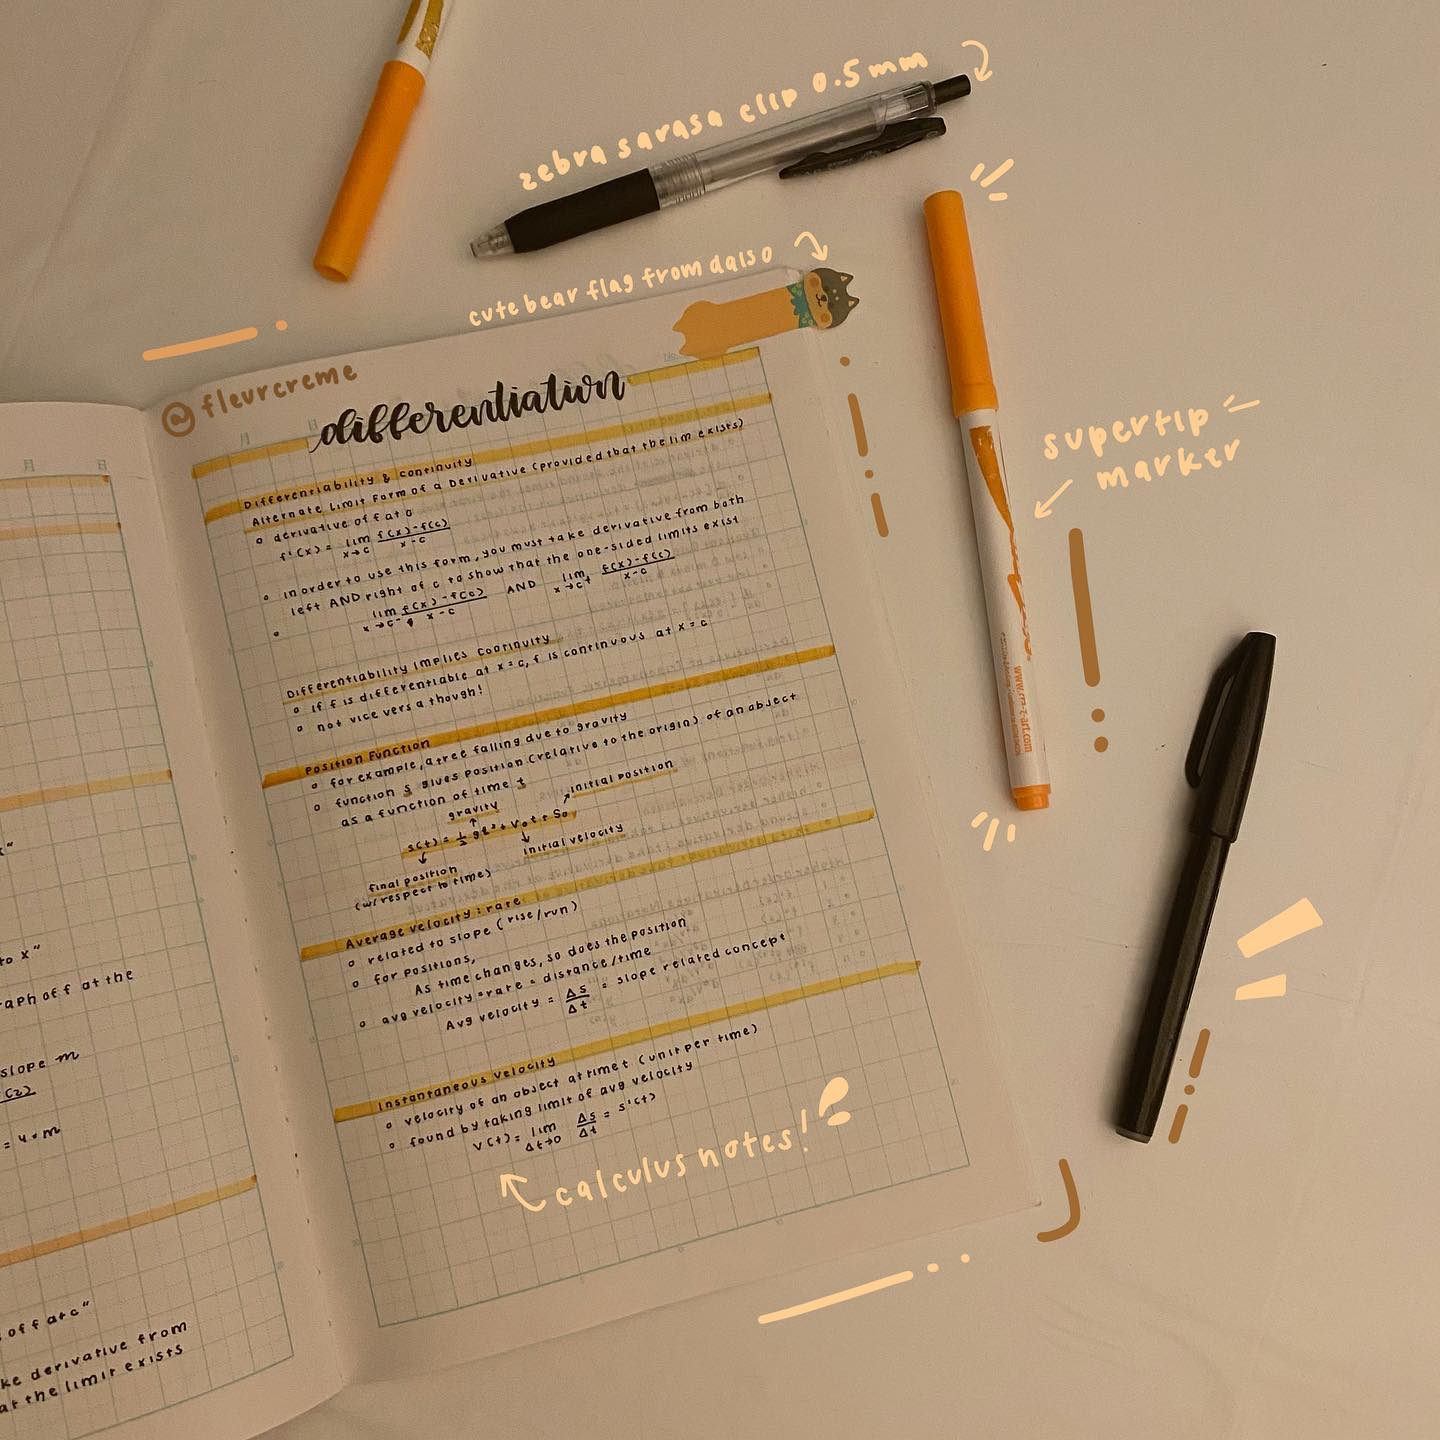 zebra sarasa clip 0.5mm
cute bear flag from daiso
@fleurcreme
differentiation
Differentiability & Continuity
Alternate Limit Form of a Derivative (provided that the lim exists)
derivative of f at
f'(x) = lim x→c f(x)-f(c) / x-c
in order to use this form, you must take derivative from both
left AND right of c to show that the one-sided limits exist
lim x→c- f(x)-f(c) / x-c AND lim x→c+ f(x)-f(c) / x-c
Differentiability Implies Continuity
if f is differentiable at x=c, f is continuous at x=c
not vice versa though!
Position Function
for example, a tree falling due to gravity
function s gives position (relative to the origin) of an object
as a function of time t
gravity
initial position
s(t) = ½gt² + V₀t + S₀
initial velocity
final position
(w/ respect to time)
Average velocity: rate
related to slope (rise/run)
for positions,
As time changes, so does the position
avg velocity = rate = distance/time
Avg velocity = Δs/Δt = slope related concept
Instantaneous velocity
velocity of an object at time t (unit per time)
found by taking limit of avg velocity
v(t) = lim Δt→0 Δs/Δt = s'(t)
calculus notes!
supertip
marker
to x"
aph of f at the
slope m
= 4 • m
of f at c"
ke derivative from
at the limit exists